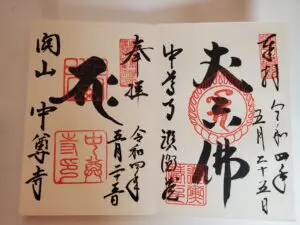 奉拝
令和四年
五月二十五日
丈六佛
中尊寺 讃衡蔵
奉拝
令和四年
五月二十五日
関山 中尊寺